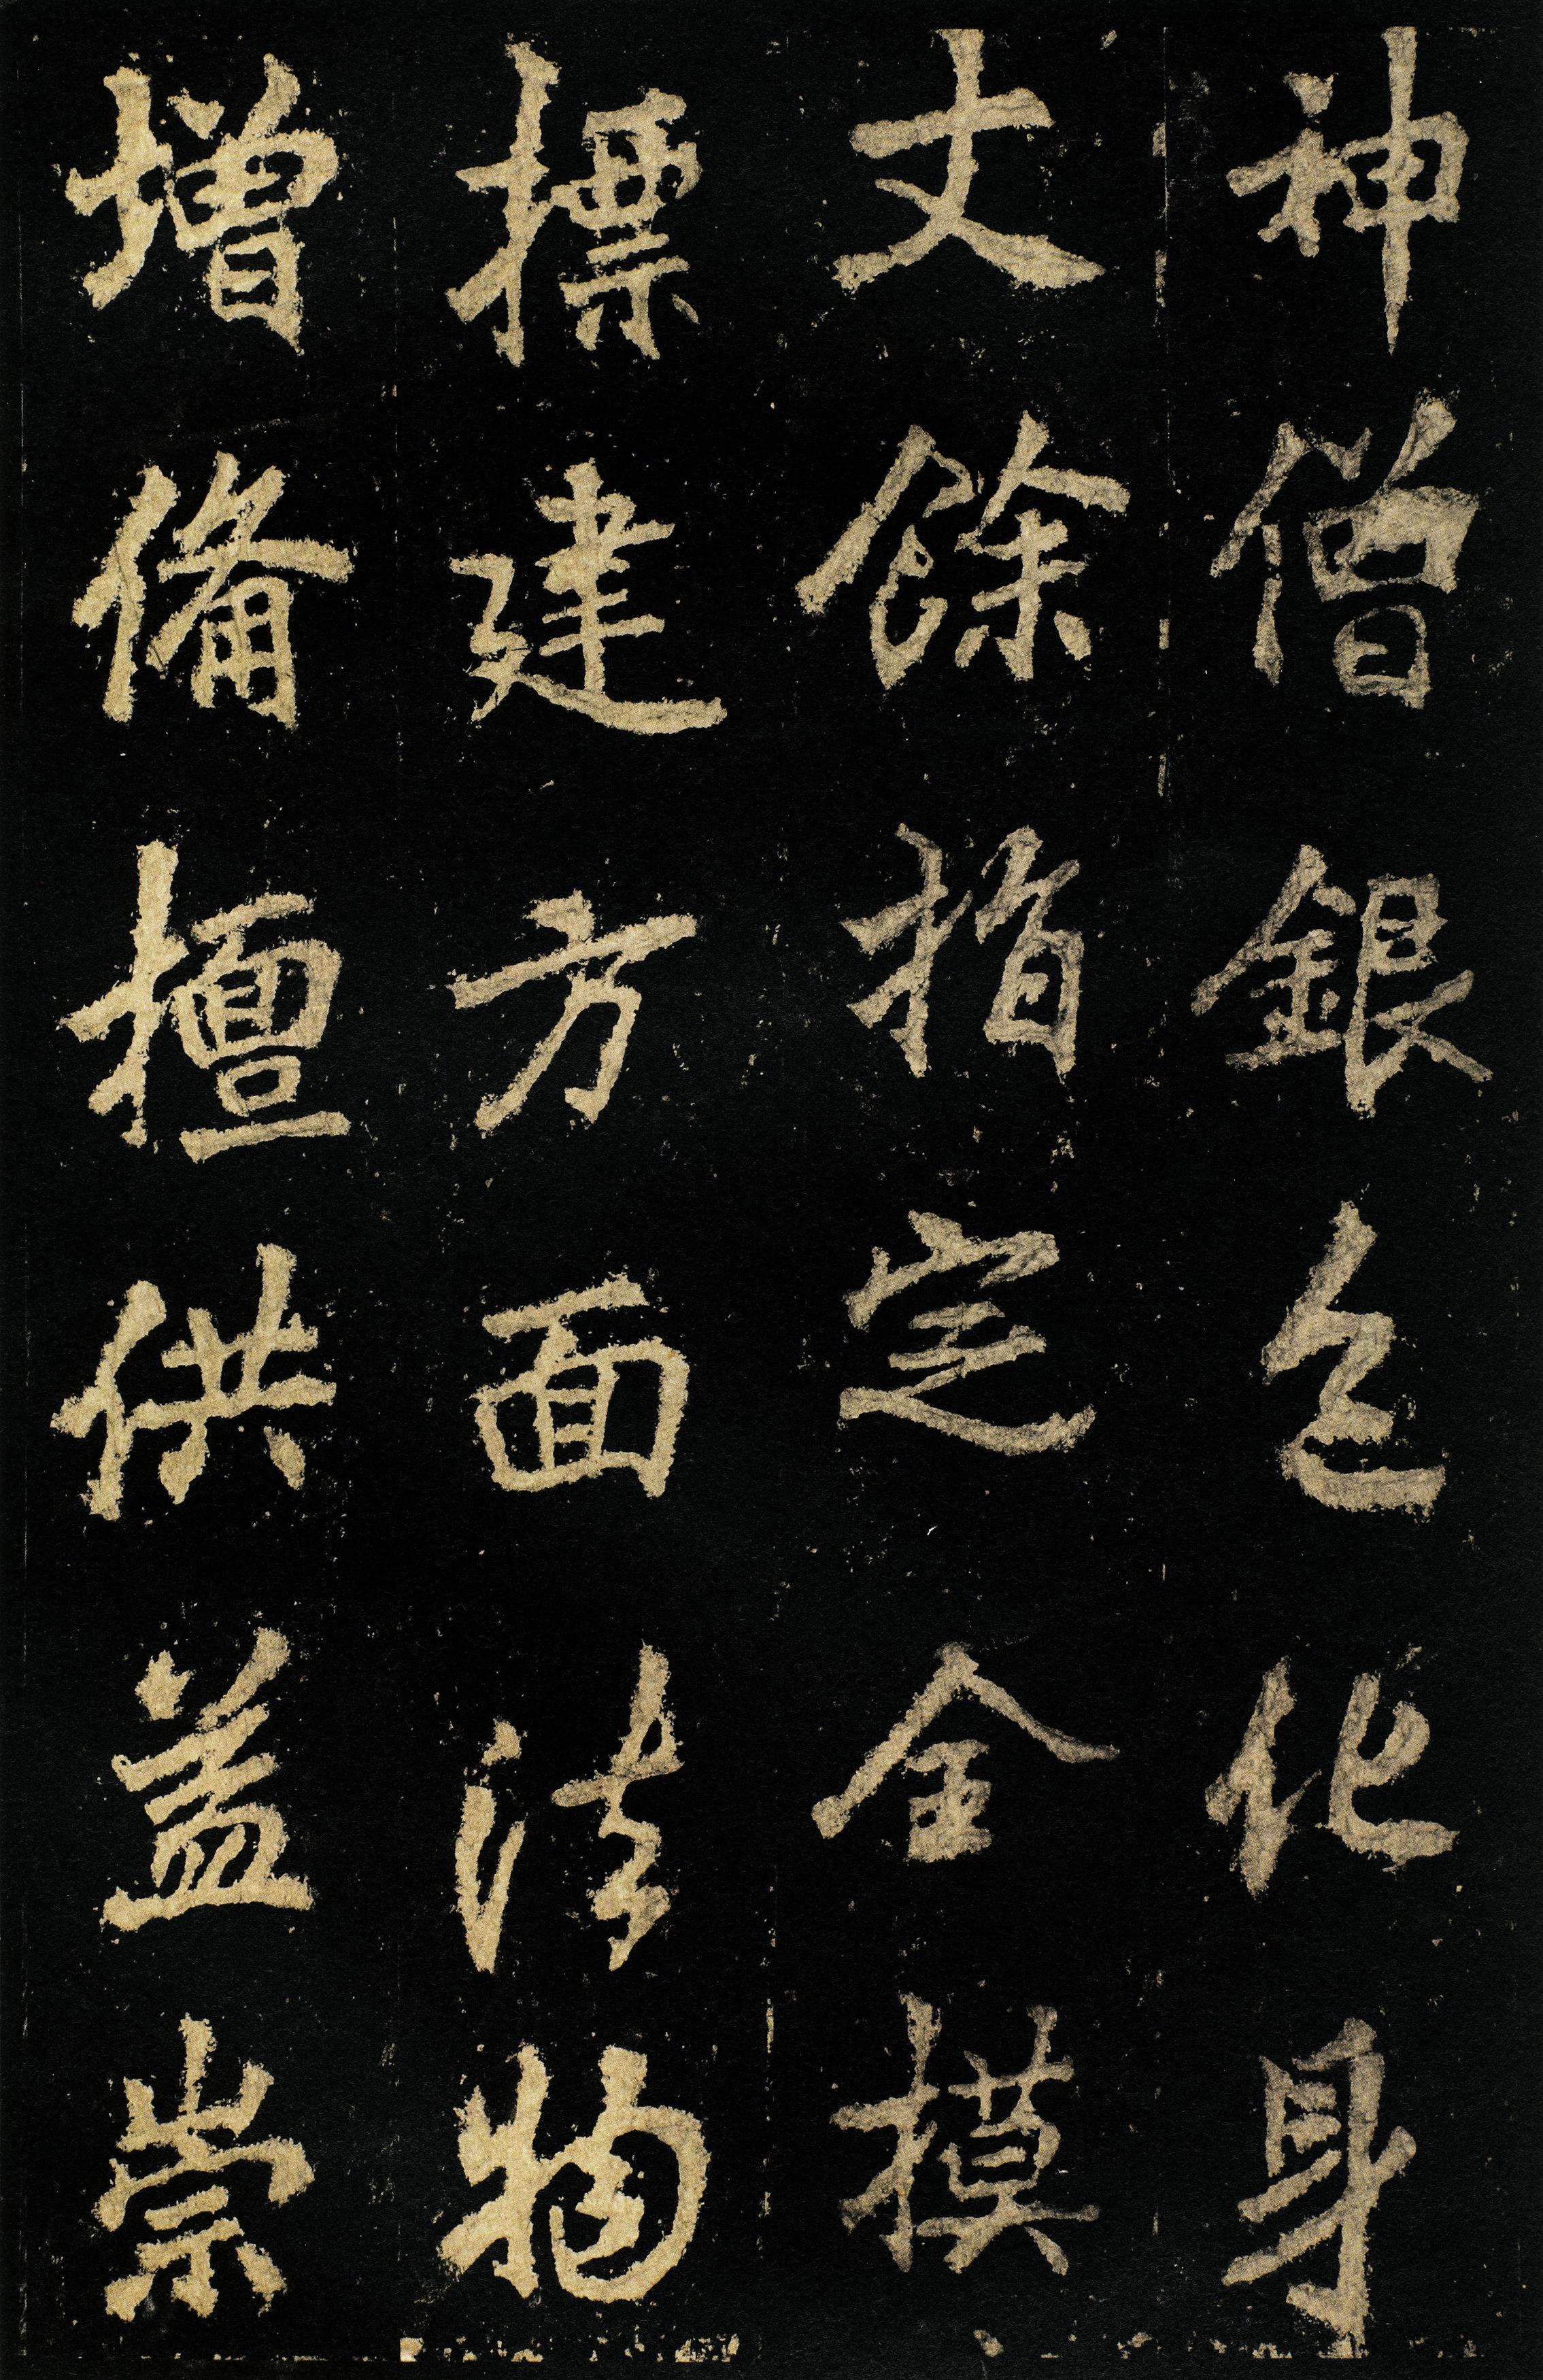 神僧銀色化身
丈餘指定全模
標建方面法物
增備檀供益崇